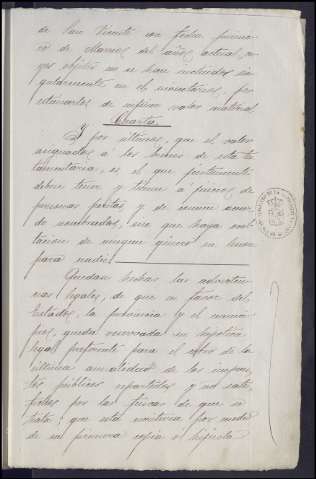 de San Vicente con fecha primero
de Marzo del año actual, cu-
yos objetos no se han incluidos sin-
gularmente en el inventario, por
estimarlos de infimo valor material
Cuarta
Y por último, que el valor
asignado á los bienes de esta tes-
tamentaria, es el que justamente
deben tener y tienen á juicio de
personas peritas y de comun acuer-
do nombradas, sin que haya
de ningun género en
para nadie.
Quedan hechas las adverten-
cias legales, de que en favor del
Estado, la provincia y el munici-
pio, queda reservada su hipoteca
legal preferente para el cobro de la
última anualidad de los impues-
tos públicos repartidos y no satis-
fechos por las fincas de que se
trata; que esta escritura por medio
de su primera copia é hijuela